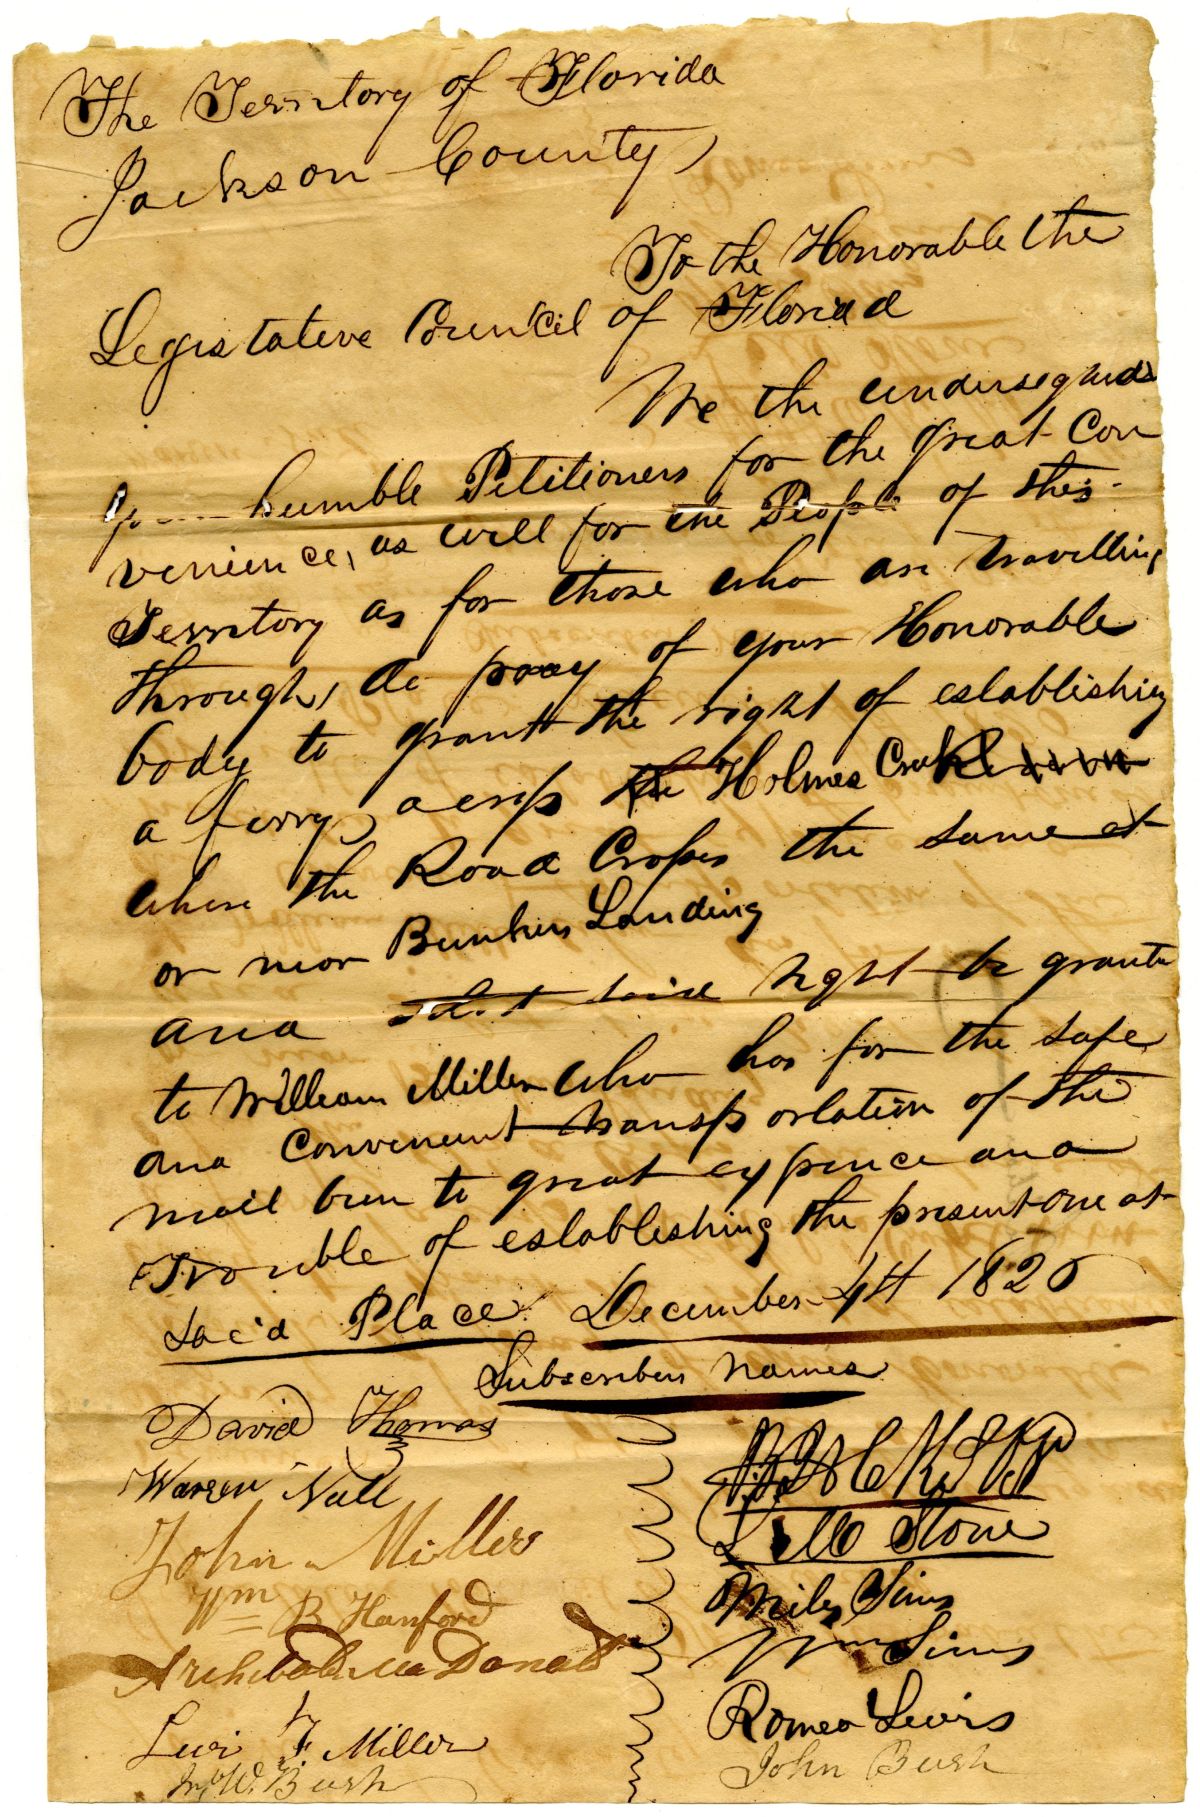 The Territory of Florida
Jackson County
To the Honorable the
Legistative Council of Floriad
We the undersegned
humble Petitioners for the great Con
venience, as well for the People of this
Territory as for those who are travelling
through, do pray of your Honorable
body to grant the right of establishing
a ferry, acrofs the Holmes Creek
where the Road Crofses the same at
or near Bunkers Landing
and right be grante
to William Miller who has for the safe
and Convenient transportation of the
mail been to great expence and
Trouble of establishing the present one at
Said Place December 4th 1826
Subscribers names
David Thomas
Warren Nall
John Miller
Wm B Hanford
Archibald McDonald
Levi F Miller
Jno W. Bush
Stone
Miles Sims
Wm Sims
Romeo Lewis
John Bush